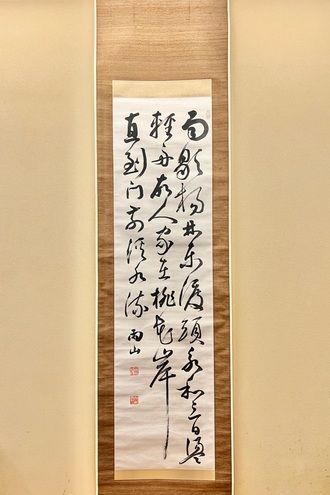 雨歇楊林東渡頭永和三日盪
輕舟故人家在桃花岸
直到门前溪水流 雨山